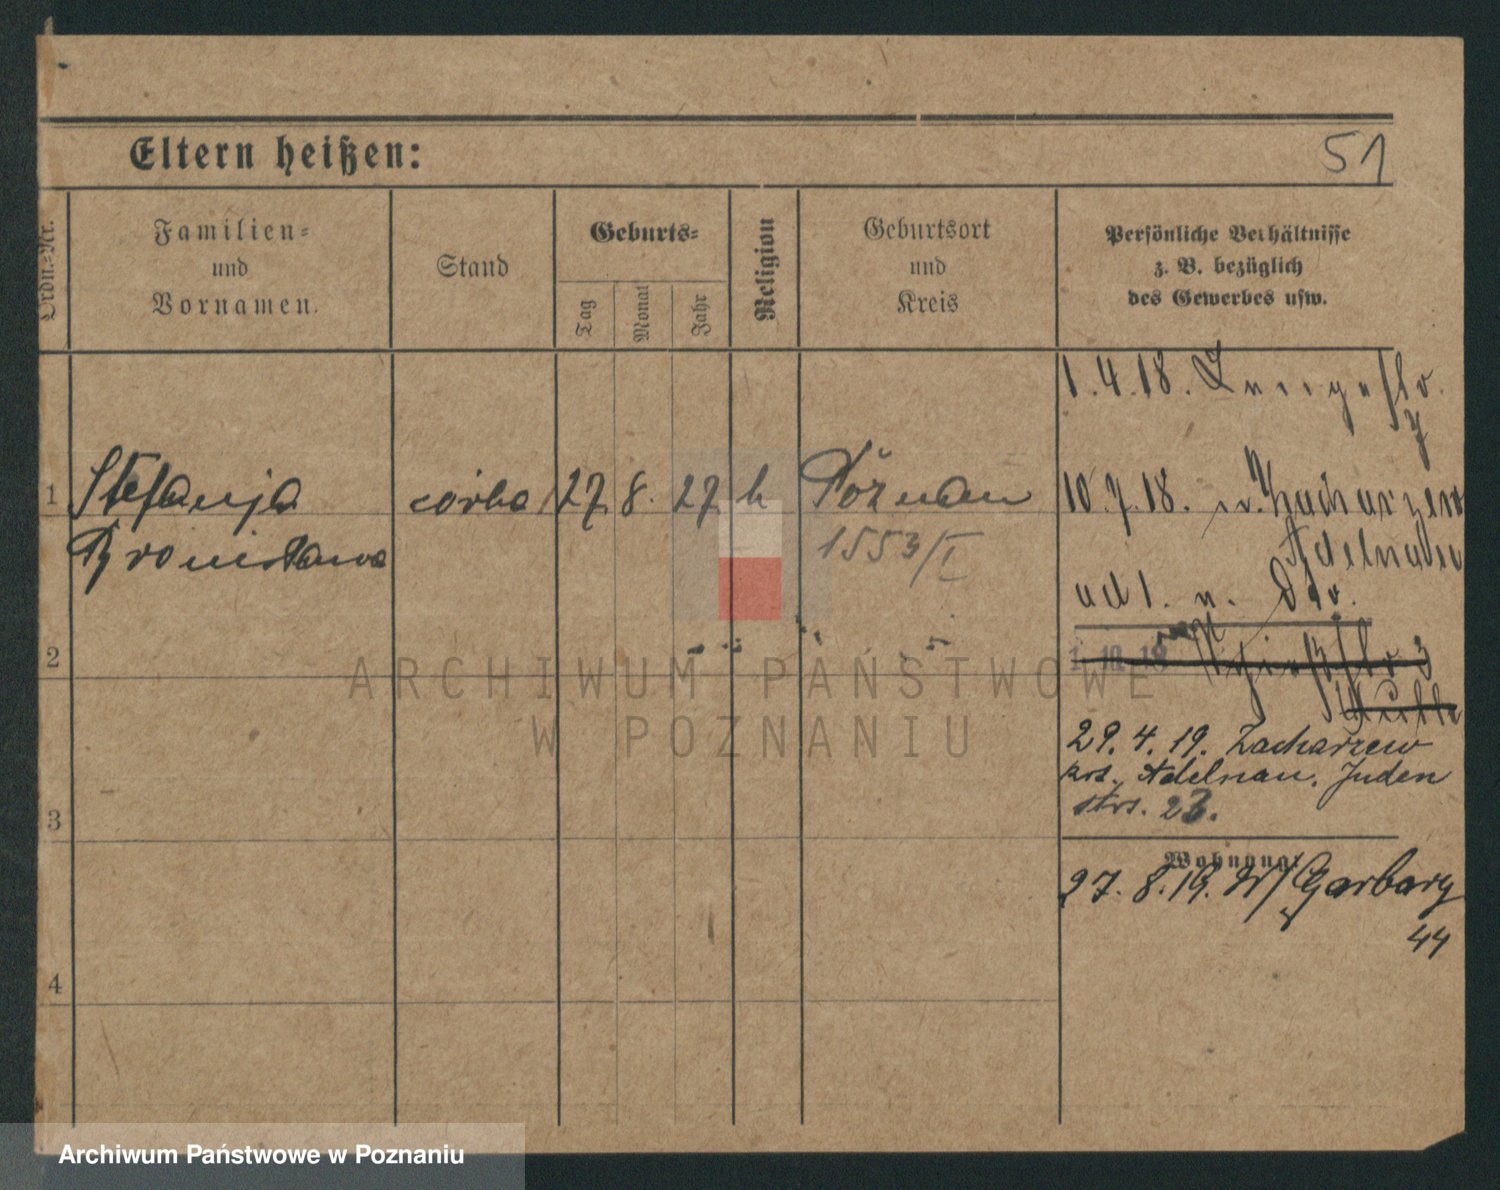 Eltern heißen:
51
Ordn.-Nr.
Familien-
und
Vornamen.
Stand
Geburts-
Tag
Monat
Jahr
Religion
Geburtsort
und
Kreis
Persönliche Verhältnisse
z. B. bezüglich
des Gewerbes usw.
1.4.18.
1 Stefanja córka 27. 8. 27. k Póznan
Bronisława
1553/I
10.7.18. n. Zacharzew
Adelnau
2
29. 4. 19. Zacharzew
krs. Adelnau, Juden
strs. 23.
3
Wohnung
27. 8. 19. W/ Garbary
44
4
ARCHIWUM PAŃSTWOWE
W POZNANIU
Archiwum Państwowe w Poznaniu